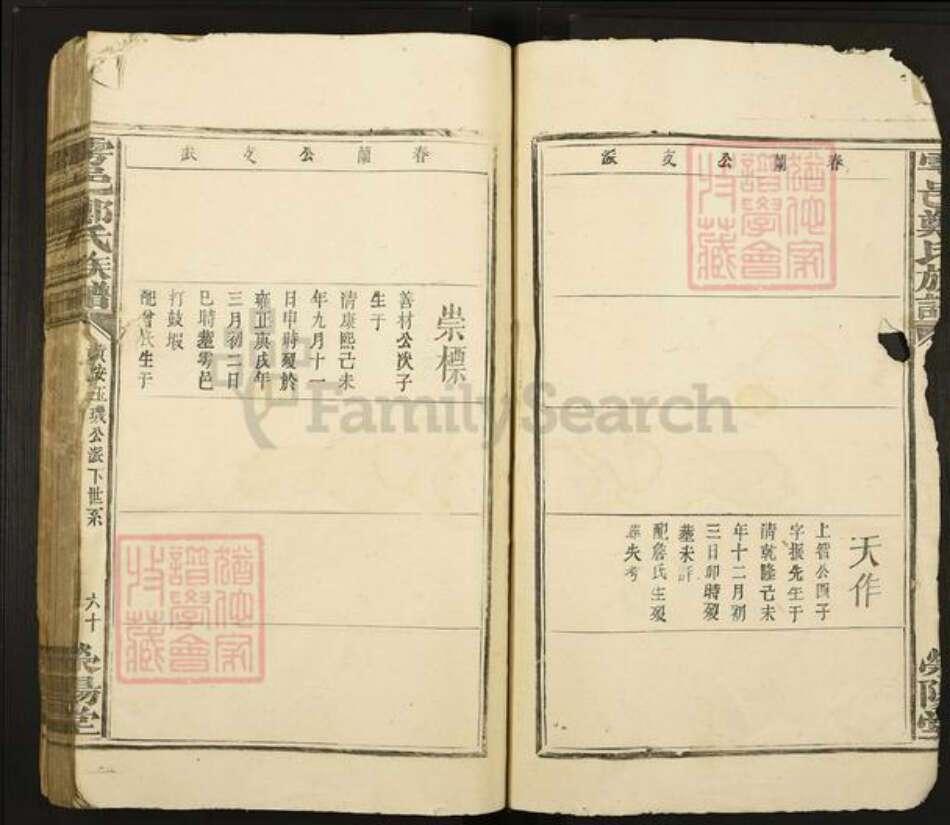 雩邑鄭氏族譜
滎陽堂
春蘭公支派
天作
上智公四子
字振先生于
清乾隆己未
年十二月初
三日卯時歿
葬未詳
配詹氏生歿
葬失考
春蘭公支派
崇標
善材公次子
生于
清康熙己未
年九月十一
日申時歿於
雍正庚戌年
三月初二日
巳時葬雩邑
打鼓塅
配曾氏生于
雩邑鄭氏族譜
黃安玉璣公派下世系
六十
滎陽堂
猶他家譜學會收藏
猶他家譜學會收藏
FamilySearch